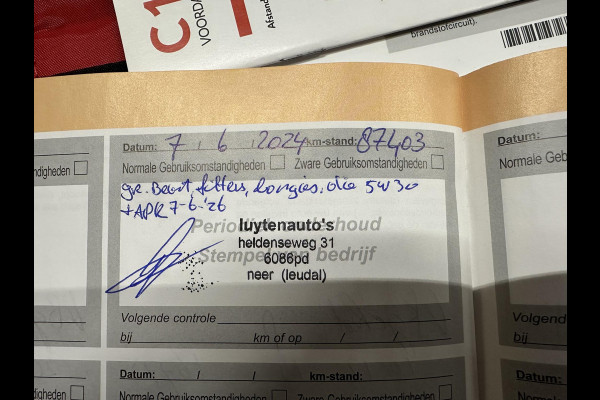 C1
VOORDA
Afstanden
brandstofcircuit).
Datum: 7 / 6 / 2024 km-stand: 87403
Normale Gebruiksomstandigheden Zware Gebruiksomstandigheden
gr. Beurt, filters, bougies, olie 5W30
+ APK 7-6-'26
Periodiek onderhoud
Stempel van bedrijf
luytenauto's
heldenseweg 31
6086pd
neer (leudal)
Volgende controle
bij km of op / /
Datum: / / km-stand:
Normale Gebruiksomstandigheden Zware Gebruiksomstandigheden
digheden
digheden
Datum:
Normale Geb
Volgende
bij
Datum:
Normale Geb